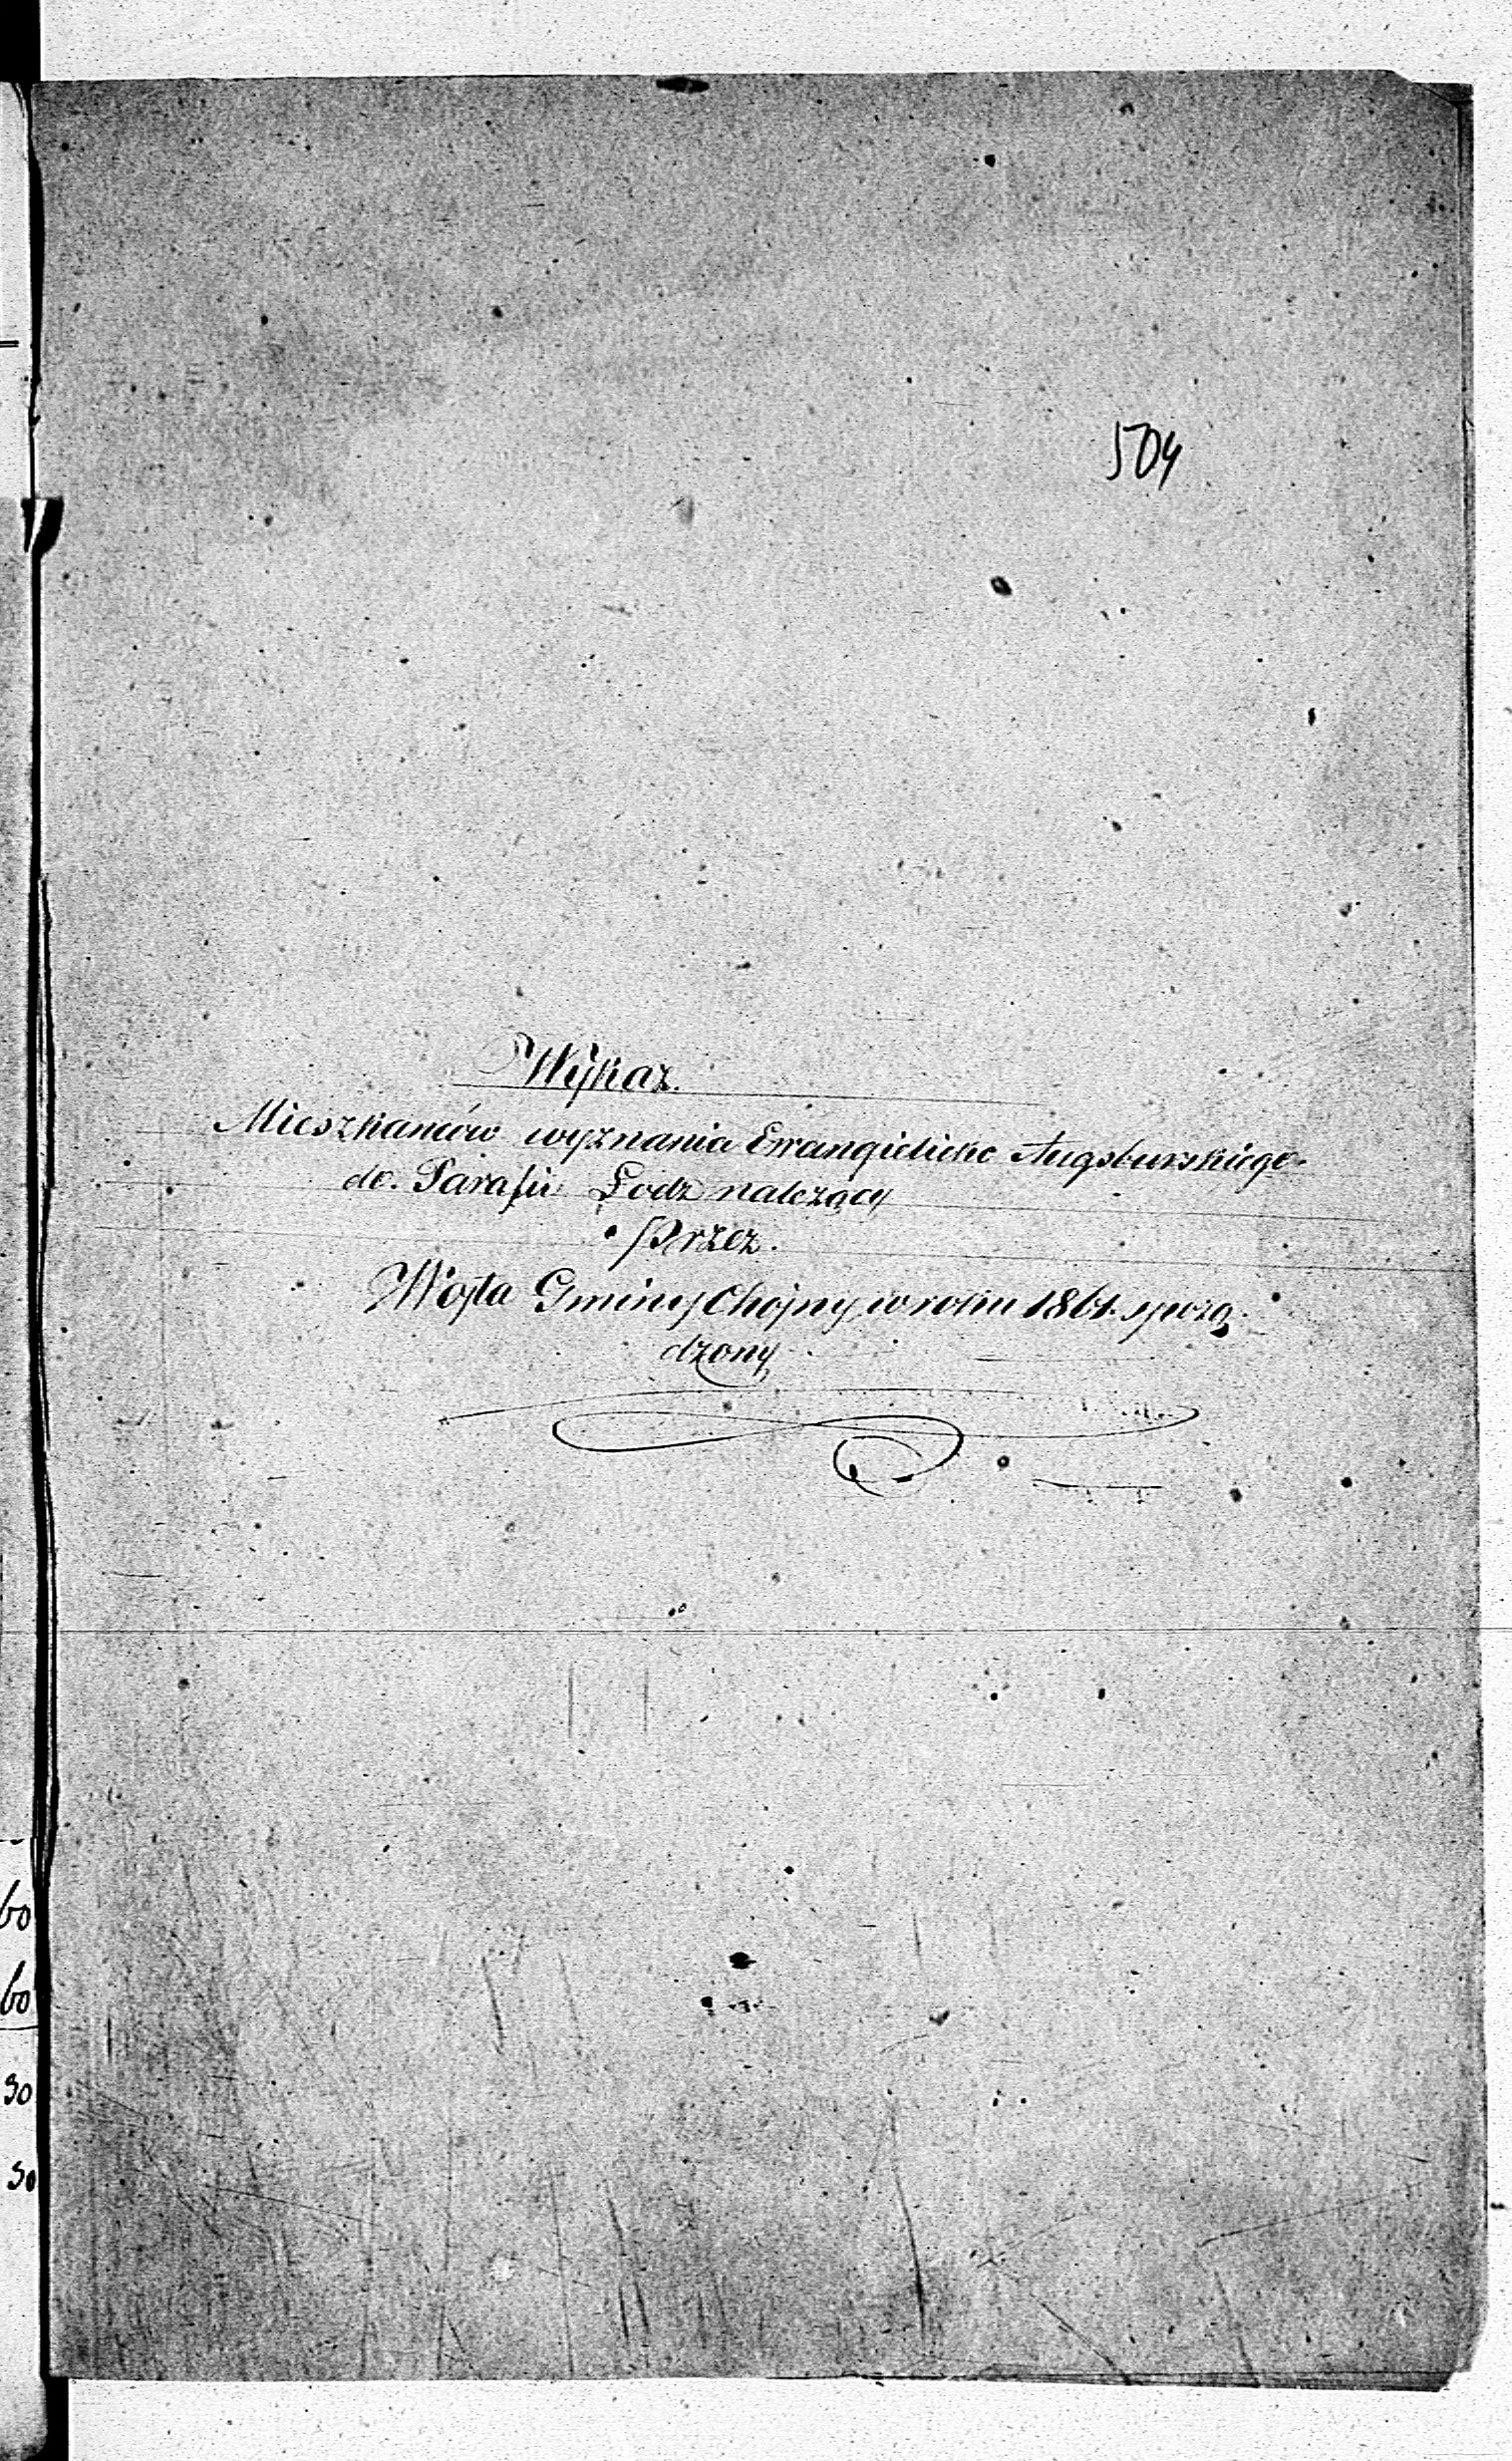 504
Wykaz.
Mieszkańców wyznania Ewangielicko Augsburskiego
do. Parafii Łodz należący
Przez.
Wojta Gminy Chojny w roku 1861. sporzą
dzony
60
60
30
30